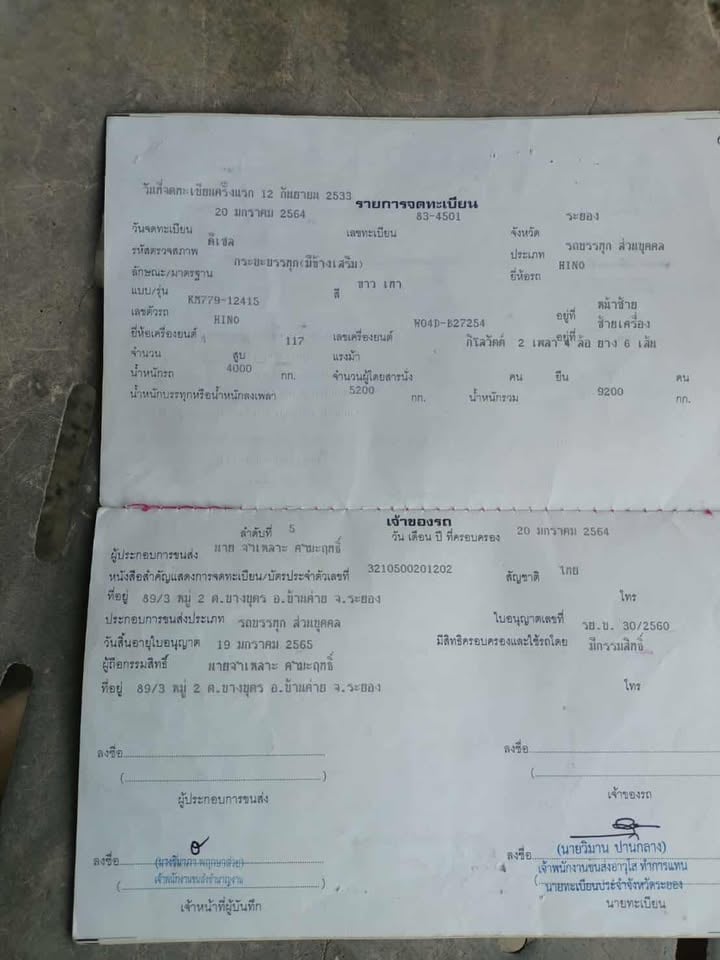 วันที่จดทะเบียนครั้งแรก 12 กันยายน 2533
รายการจดทะเบียน
วันจดทะเบียน 20 มกราคม 2564 เลขทะเบียน 83-4501 จังหวัด ระยอง
รหัสตรวจสภาพ ดีเซล ประเภท รถบรรทุก ส่วนบุคคล
ลักษณะ/มาตรฐาน กระบะบรรทุก(มีข้างเสริม) ยี่ห้อรถ HINO
แบบ/รุ่น สี ขาว เทา
เลขตัวรถ KM779-12415 อยู่ที่ หน้าซ้าย
ยี่ห้อเครื่องยนต์ HINO เลขเครื่องยนต์ W04D-B27254 อยู่ที่ ซ้ายเครื่อง
จำนวน 4 สูบ 117 แรงม้า กิโลวัตต์ 2 เพลา 4 ล้อ ยาง 6 เส้น
น้ำหนักรถ 4000 กก. จำนวนผู้โดยสารนั่ง คน ยืน คน
น้ำหนักบรรทุกหรือน้ำหนักลงเพลา 5200 กก. น้ำหนักรวม 9200 กก.
เจ้าของรถ
ลำดับที่ 5 วัน เดือน ปี ที่ครอบครอง 20 มกราคม 2564
ผู้ประกอบการขนส่ง นาย
หนังสือสำคัญแสดงการจดทะเบียน/บัตรประจำตัวเลขที่ 3210500201202 สัญชาติ ไทย
ที่อยู่ 89/3 หมู่ 2 ต.บางบุตร อ.บ้านค่าย จ.ระยอง โทร
ประกอบการขนส่งประเภท รถบรรทุก ส่วนบุคคล ใบอนุญาตเลขที่ รย.บ. 30/2560
วันสิ้นอายุใบอนุญาต 19 มกราคม 2565 มีสิทธิครอบครองและใช้รถโดย มีกรรมสิทธิ์
ผู้ถือกรรมสิทธิ์
ที่อยู่ 89/3 หมู่ 2 ต.บางบุตร อ.บ้านค่าย จ.ระยอง โทร
ลงชื่อ ลงชื่อ
ผู้ประกอบการขนส่ง เจ้าของรถ
ลงชื่อ ลงชื่อ
(นายวิมาน ปานกลาง)
เจ้าพนักงานขนส่งชำนาญงาน เจ้าพนักงานขนส่งอาวุโส ทำการแทน
นายทะเบียนประจำจังหวัดระยอง
เจ้าหน้าที่ผู้บันทึก นายทะเบียน